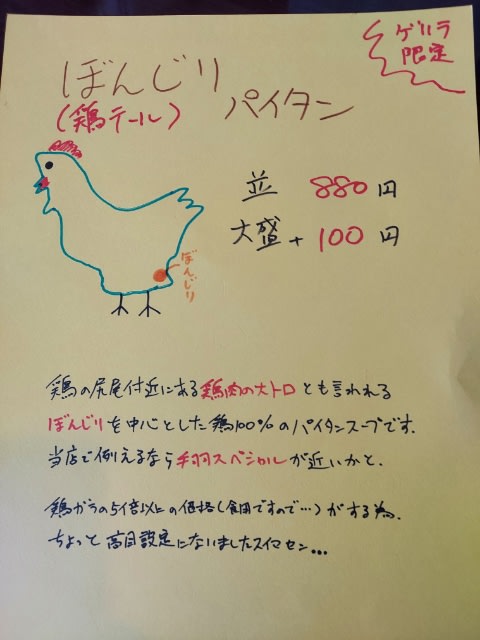 ゲリラ
限定
ぼんじり
(鶏テール)
パイタン
並 880円
大盛 + 100 円
ぼんじり
鶏の尻尾付近にある鶏肉の大トロとも言われる
ぼんじりを中心とした鶏100%のパイタンスープです.
当店で例えるなら手羽スペシャルが近いかと.
鶏ガラの5倍以上の価格(食用ですので…)がする為.
ちょっと高目設定になりましたスイマセン...